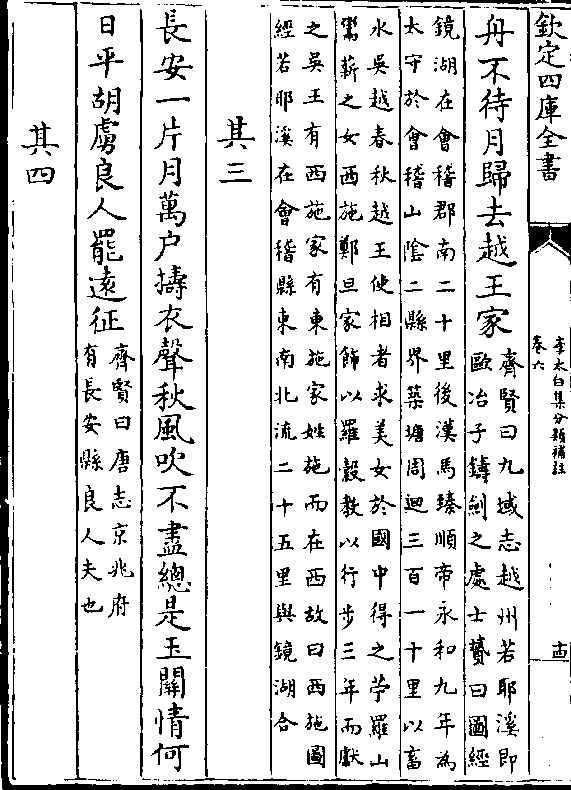 欽定四庫全書
李太白集分類補註
卷六
十四
舟不待月歸去越王家
齊賢曰九域志越州若耶溪即
歐冶子鑄劍之處士贇曰圖經
鏡湖在會稽郡南二十里後漢馬臻順帝永和九年為
太守於會稽山陰二縣界築塘周迴三百一十里以畜
水吳越春秋越王使相者求美女於國中得之苧羅山
鬻薪之女西施鄭旦家飾以羅縠教以行步三年而獻
之吳王有西施家有東施家姓施而在西故曰西施圖
經若耶溪在會稽縣東南北流二十五里與鏡湖合
其三
長安一片月萬户擣衣聲秋風吹不盡總是玉關情何
日平胡虜良人罷遠征
齊賢曰唐志京兆府
有長安縣良人夫也
其四